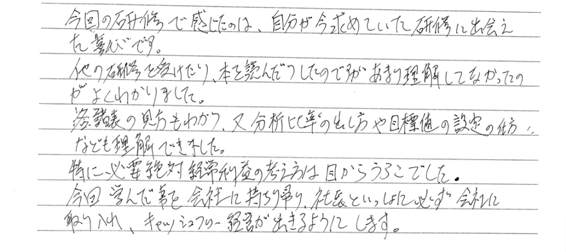 今回の研修で感じたのは、自分が今求めていた研修に出会え
た喜びです。
他の研修を受けたり、本を読んだりしたのですがあまり理解してなかったの
がよくわかりました。
諸表の見方もわかり、又分析比率の出し方や目標値の設定の仕方
なども理解できました。
特に必要絶対経常利益の考え方は目からうろこでした。
今回学んだ事を会社に持ち帰り、社長といっしょに必ず会社に
取り入れ、キャッシュフロー経営が出きるようにします。